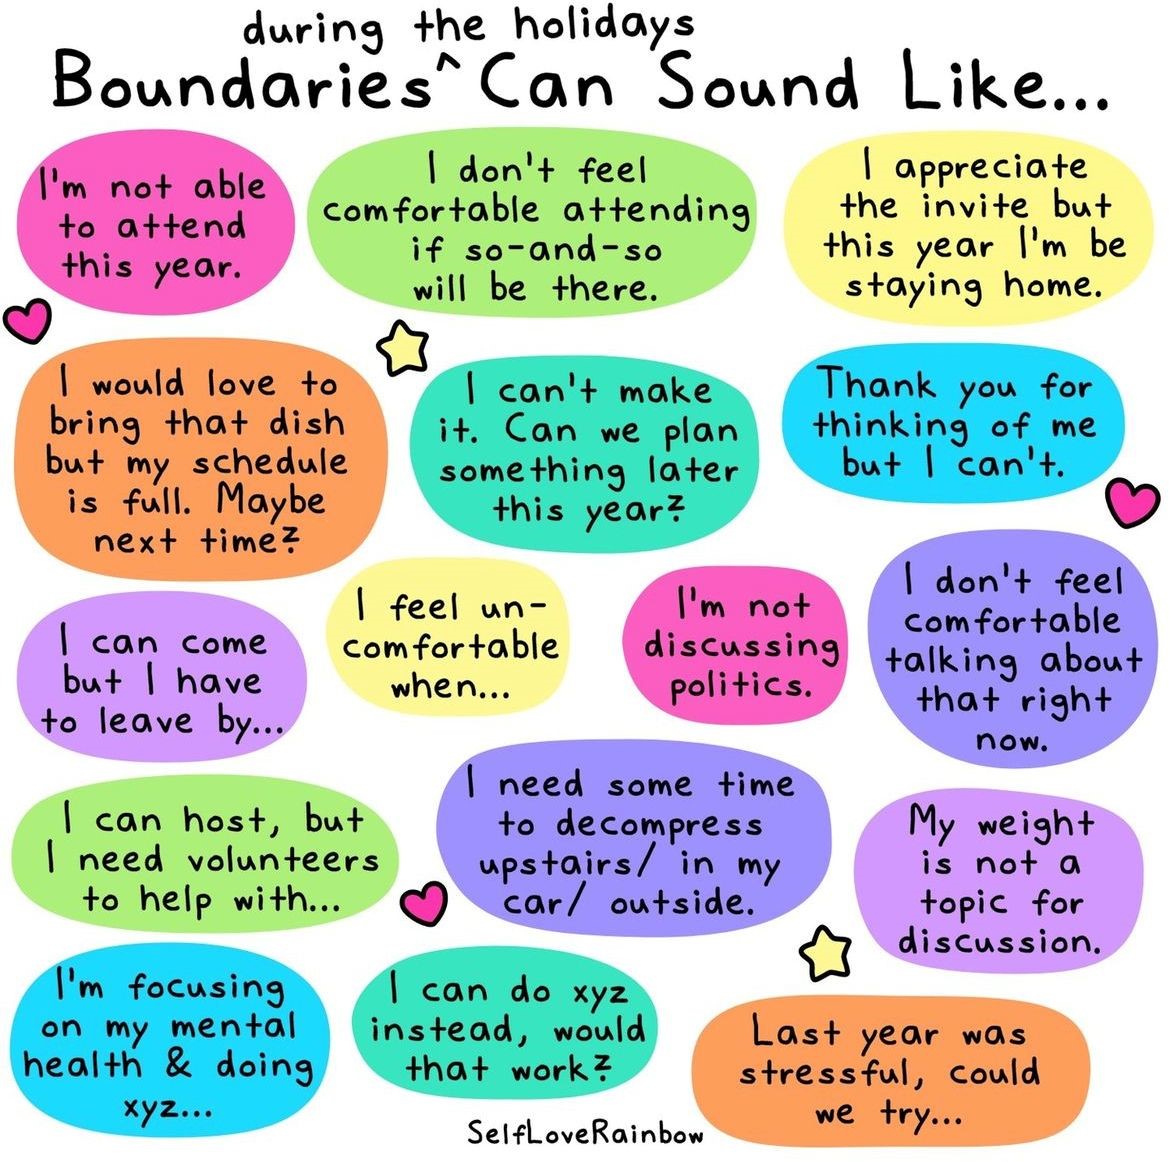 during the holidays
Boundaries^ Can Sound Like...
I'm not able
to attend
this year.
I don't feel
comfortable attending
if so-and-so
will be there.
I appreciate
the invite but
this year I'm be
staying home.
I would love to
bring that dish
but my schedule
is full. Maybe
next time?
I can't make
it. Can we plan
something later
this year?
Thank you for
thinking of me
but I can't.
I can come
but I have
to leave by...
I feel un-
comfortable
when...
I'm not
discussing
politics.
I don't feel
comfortable
talking about
that right
now.
I can host, but
I need volunteers
to help with...
I need some time
to decompress
upstairs/ in my
car/ outside.
My weight
is not a
topic for
discussion.
I'm focusing
on my mental
health & doing
xyz...
I can do xyz
instead, would
that work?
Last year was
stressful, could
we try...
SelfLoveRainbow